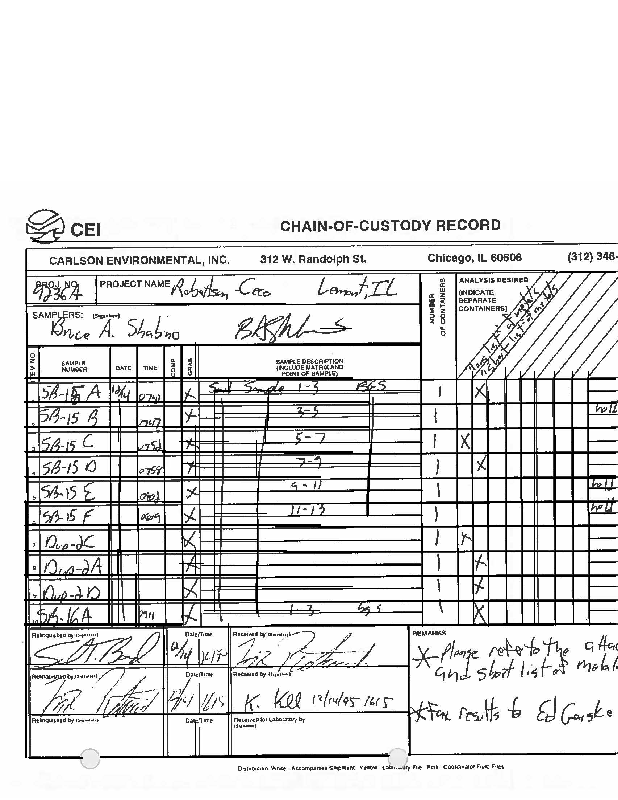 CEI
CHAIN-OF-CUSTODY RECORD
CARLSON ENVIRONMENTAL, INC. 312 W. Randolph St. Chicago, IL 60606 (312) 346-
PROJ. NO. PROJECT NAME Robertson Ceco Lemont, IL
9236A
NUMBER OF CONTAINERS
ANALYSIS DESIRED
(INDICATE
SEPARATE
CONTAINERS)
long list of metals
short list of metals
SAMPLERS: (Signature)
Bruce A. Shabino
ITEM NO. SAMPLE NUMBER DATE TIME COMP. GRAB SAMPLE DESCRIPTION (INCLUDE MATRIX AND POINT OF SAMPLE)
SB-15 A 12/14 X Soil Sample 1-3 BGS 1 X
SB-15 B X 3-5 1 hold
SB-15 C X 5-7 1 X
SB-15 D X 7-9 1 X
SB-15 E X 9-11 1 hold
SB-15 F X 11-13 1 hold
Dup-2C X 1 X
Dup-2A X 1 X
Dup-2D X 1 X
SB-16A X 1-3 bgs 1 X
Relinquished by (Signature) Date/Time Received by (Signature)
REMARKS
X-Please refer to the atta
and short list of metals
Relinquished by (Signature) Date/Time Received by (Signature)
K. Kee 12/14/95 1615
*Fax results to Ed Garske
Relinquished by (Signature) Date/Time Received for Laboratory by
(Signature)
Distribution: White - Accompanies Shipment, Yellow - Laboratory File, Pink - Coordinator Field Files